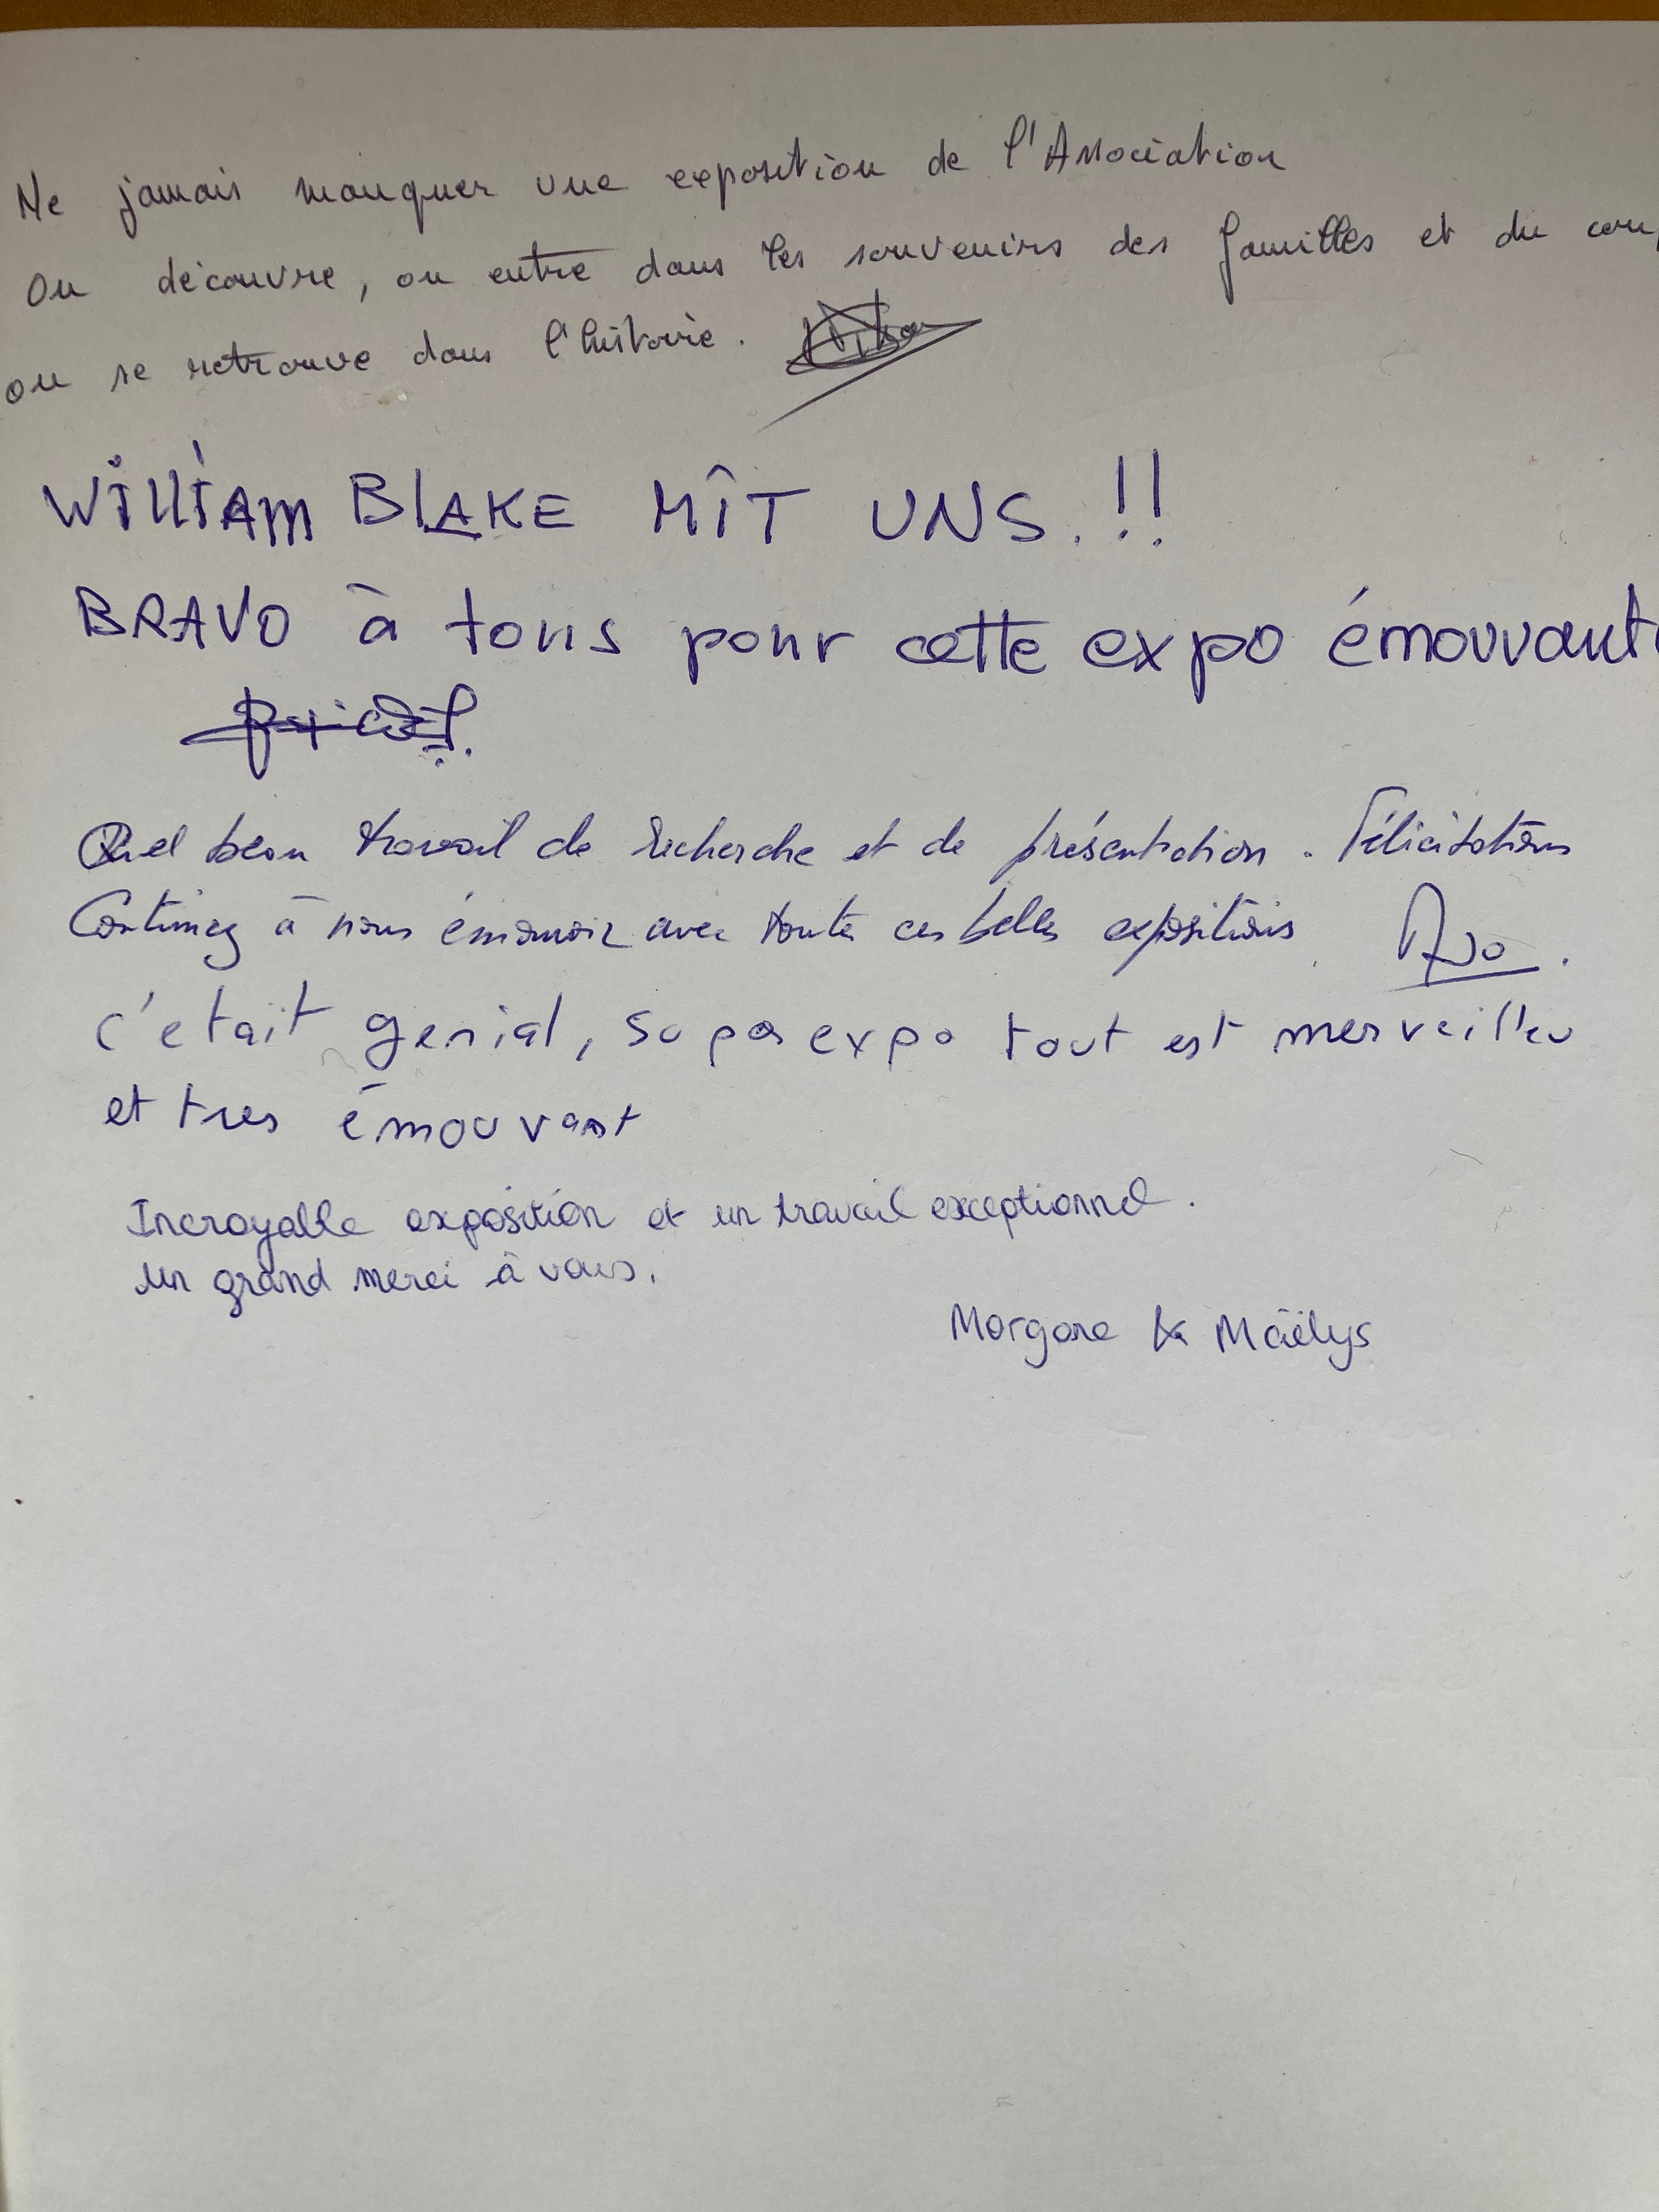 Ne jamais manquer une exposition de l'Association
On découvre, on entre dans les souvenirs des familles et du
on se retrouve dans l'histoire.
WILLIAM BLAKE MÎT UNS.!!
BRAVO à tous pour cette expo émouvante
Quel beau travail de recherche et de présentation. Félicitations
Continuez à nous émouvoir avec toute ces belles expositions.
c'etait genial, super expo tout est merveilleu
et tres émouvant
Incroyable exposition et un travail exceptionnel.
Un grand merci à vous.
Morgane & Maëlys